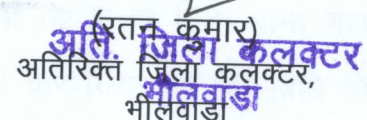 (रतन कुमार)
अति. जिला कलक्टर
अतिरिक्त जिला कलक्टर,
भीलवाडा
भीलवाडा